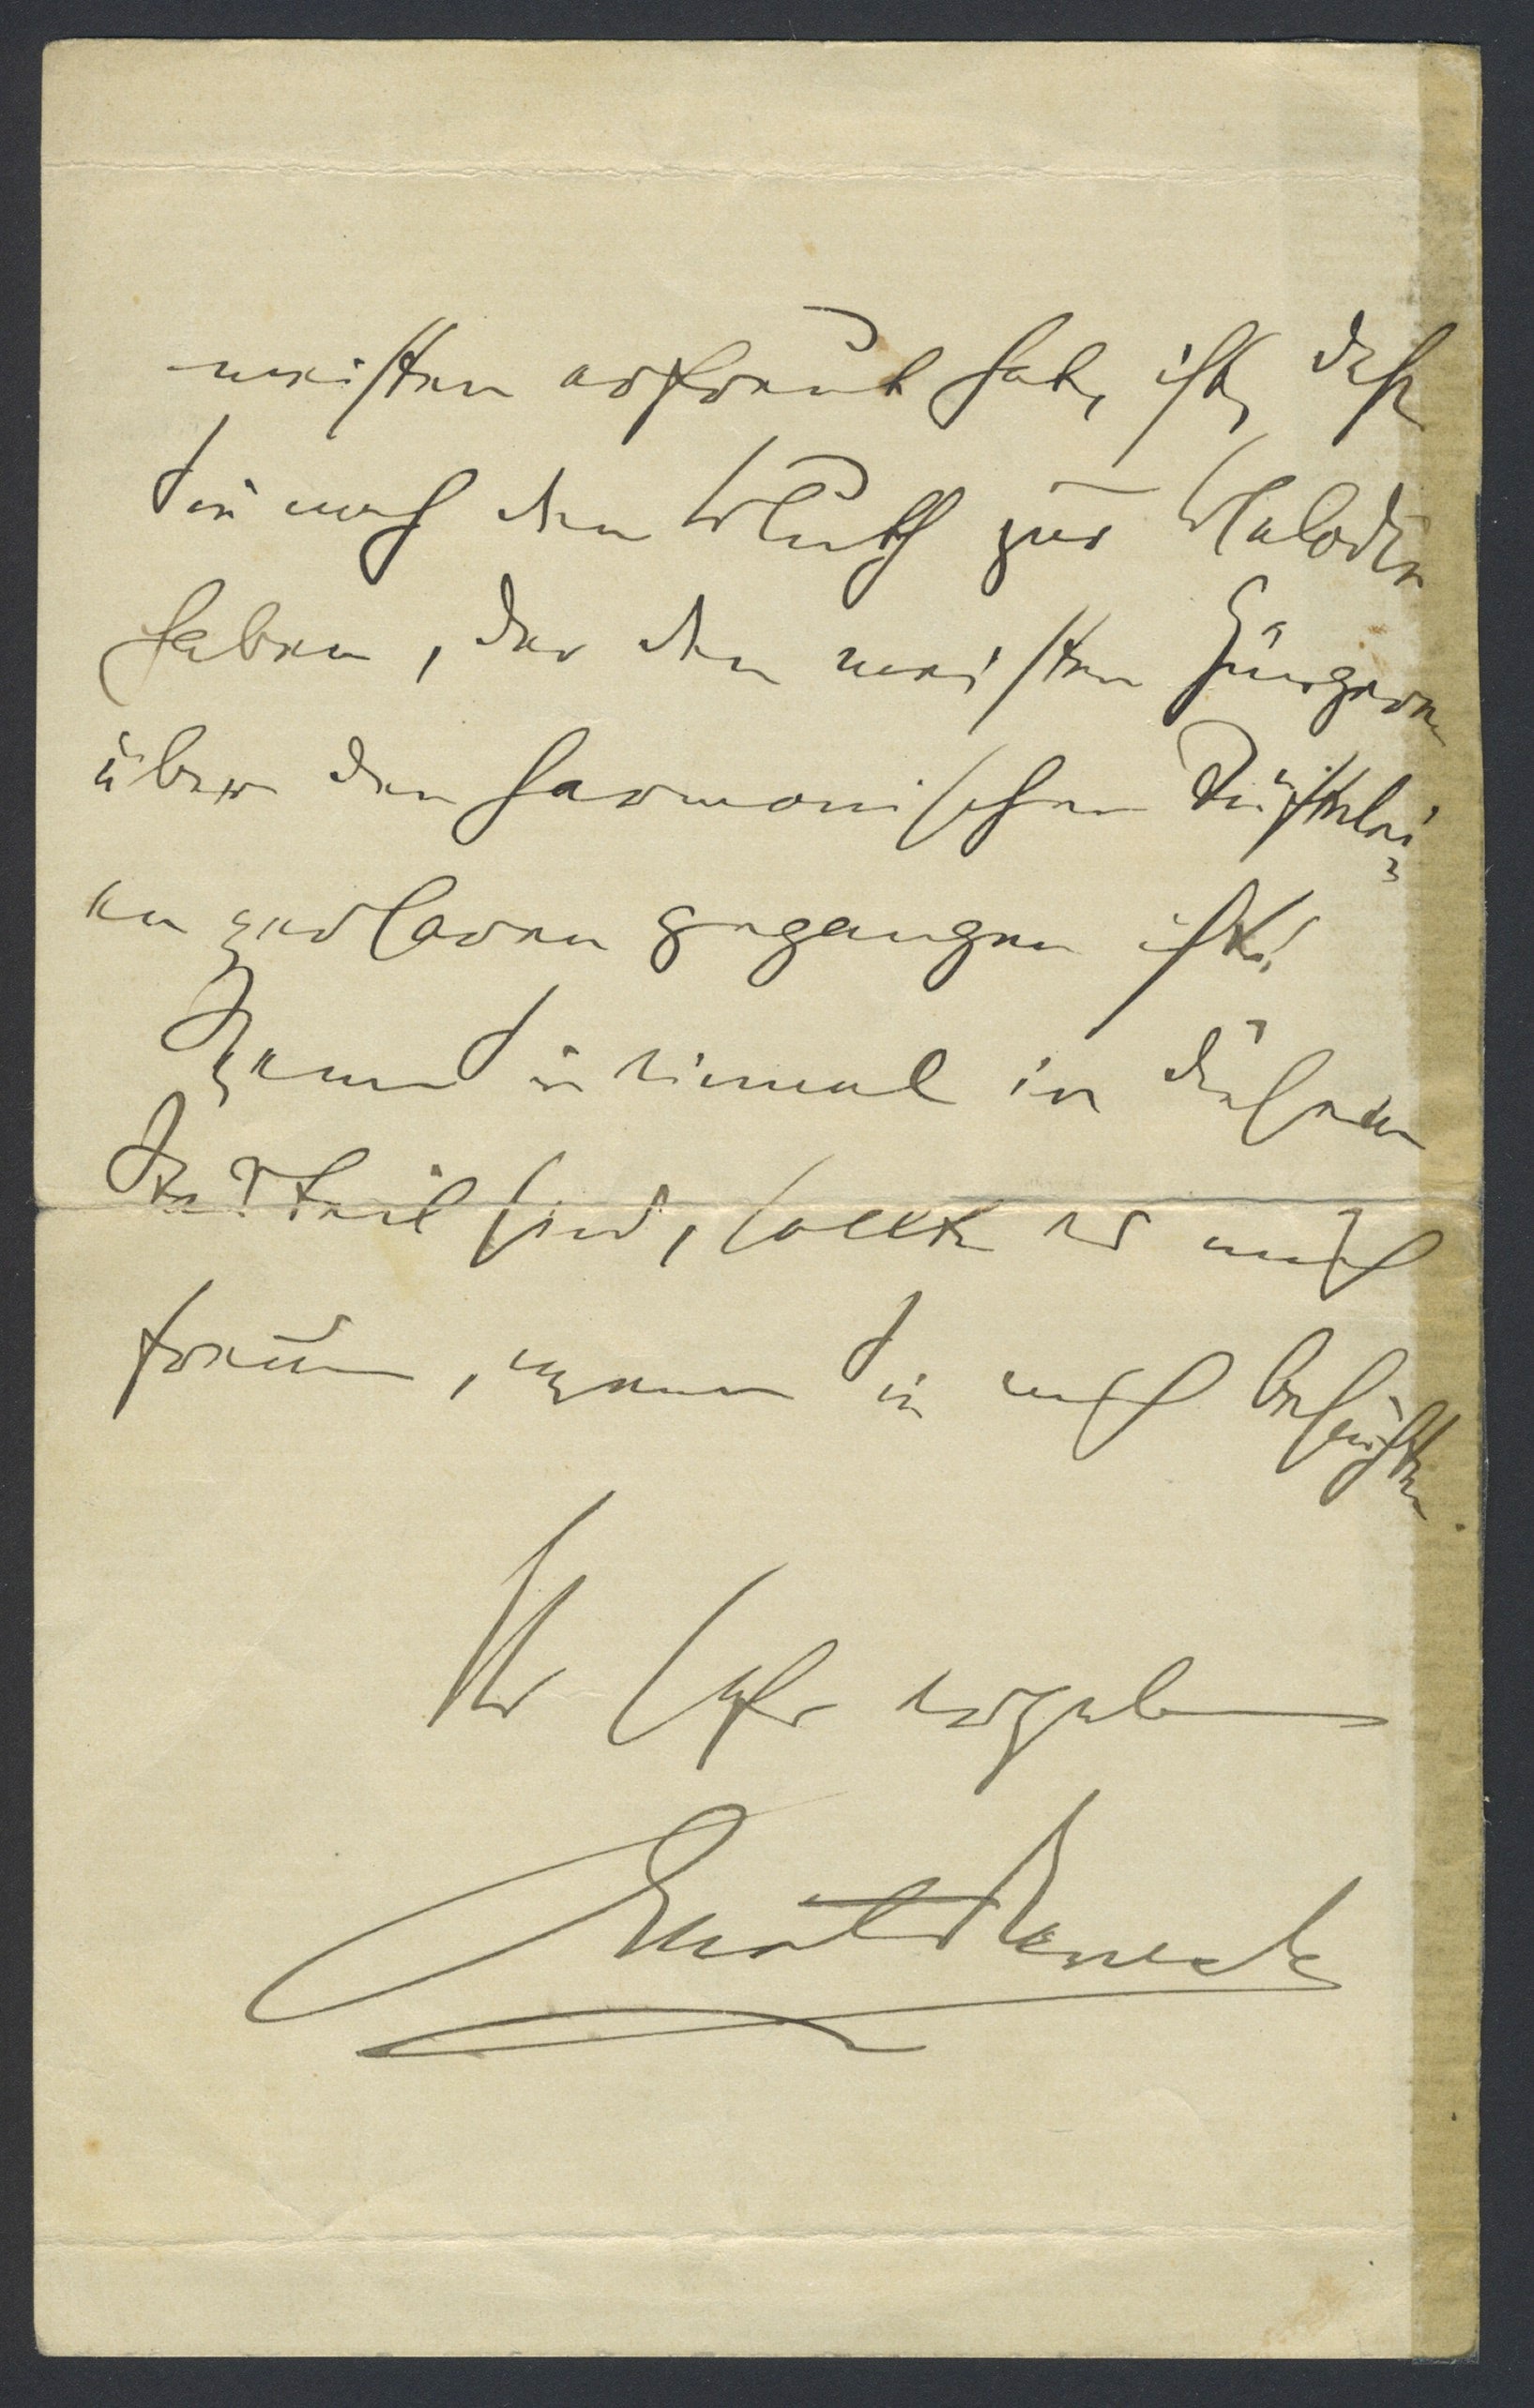 meisten erfreut hat, ist, daß
Sie noch den Muth zur Melodie
haben, der den meisten Jüngeren
über den harmonischen Tüftelei
en verloren gegangen ist!
Wenn Sie einmal in diesem
Stadtteil sind, sollte es mich
freuen, wenn Sie mich besuchten.
Ihr sehr ergebener